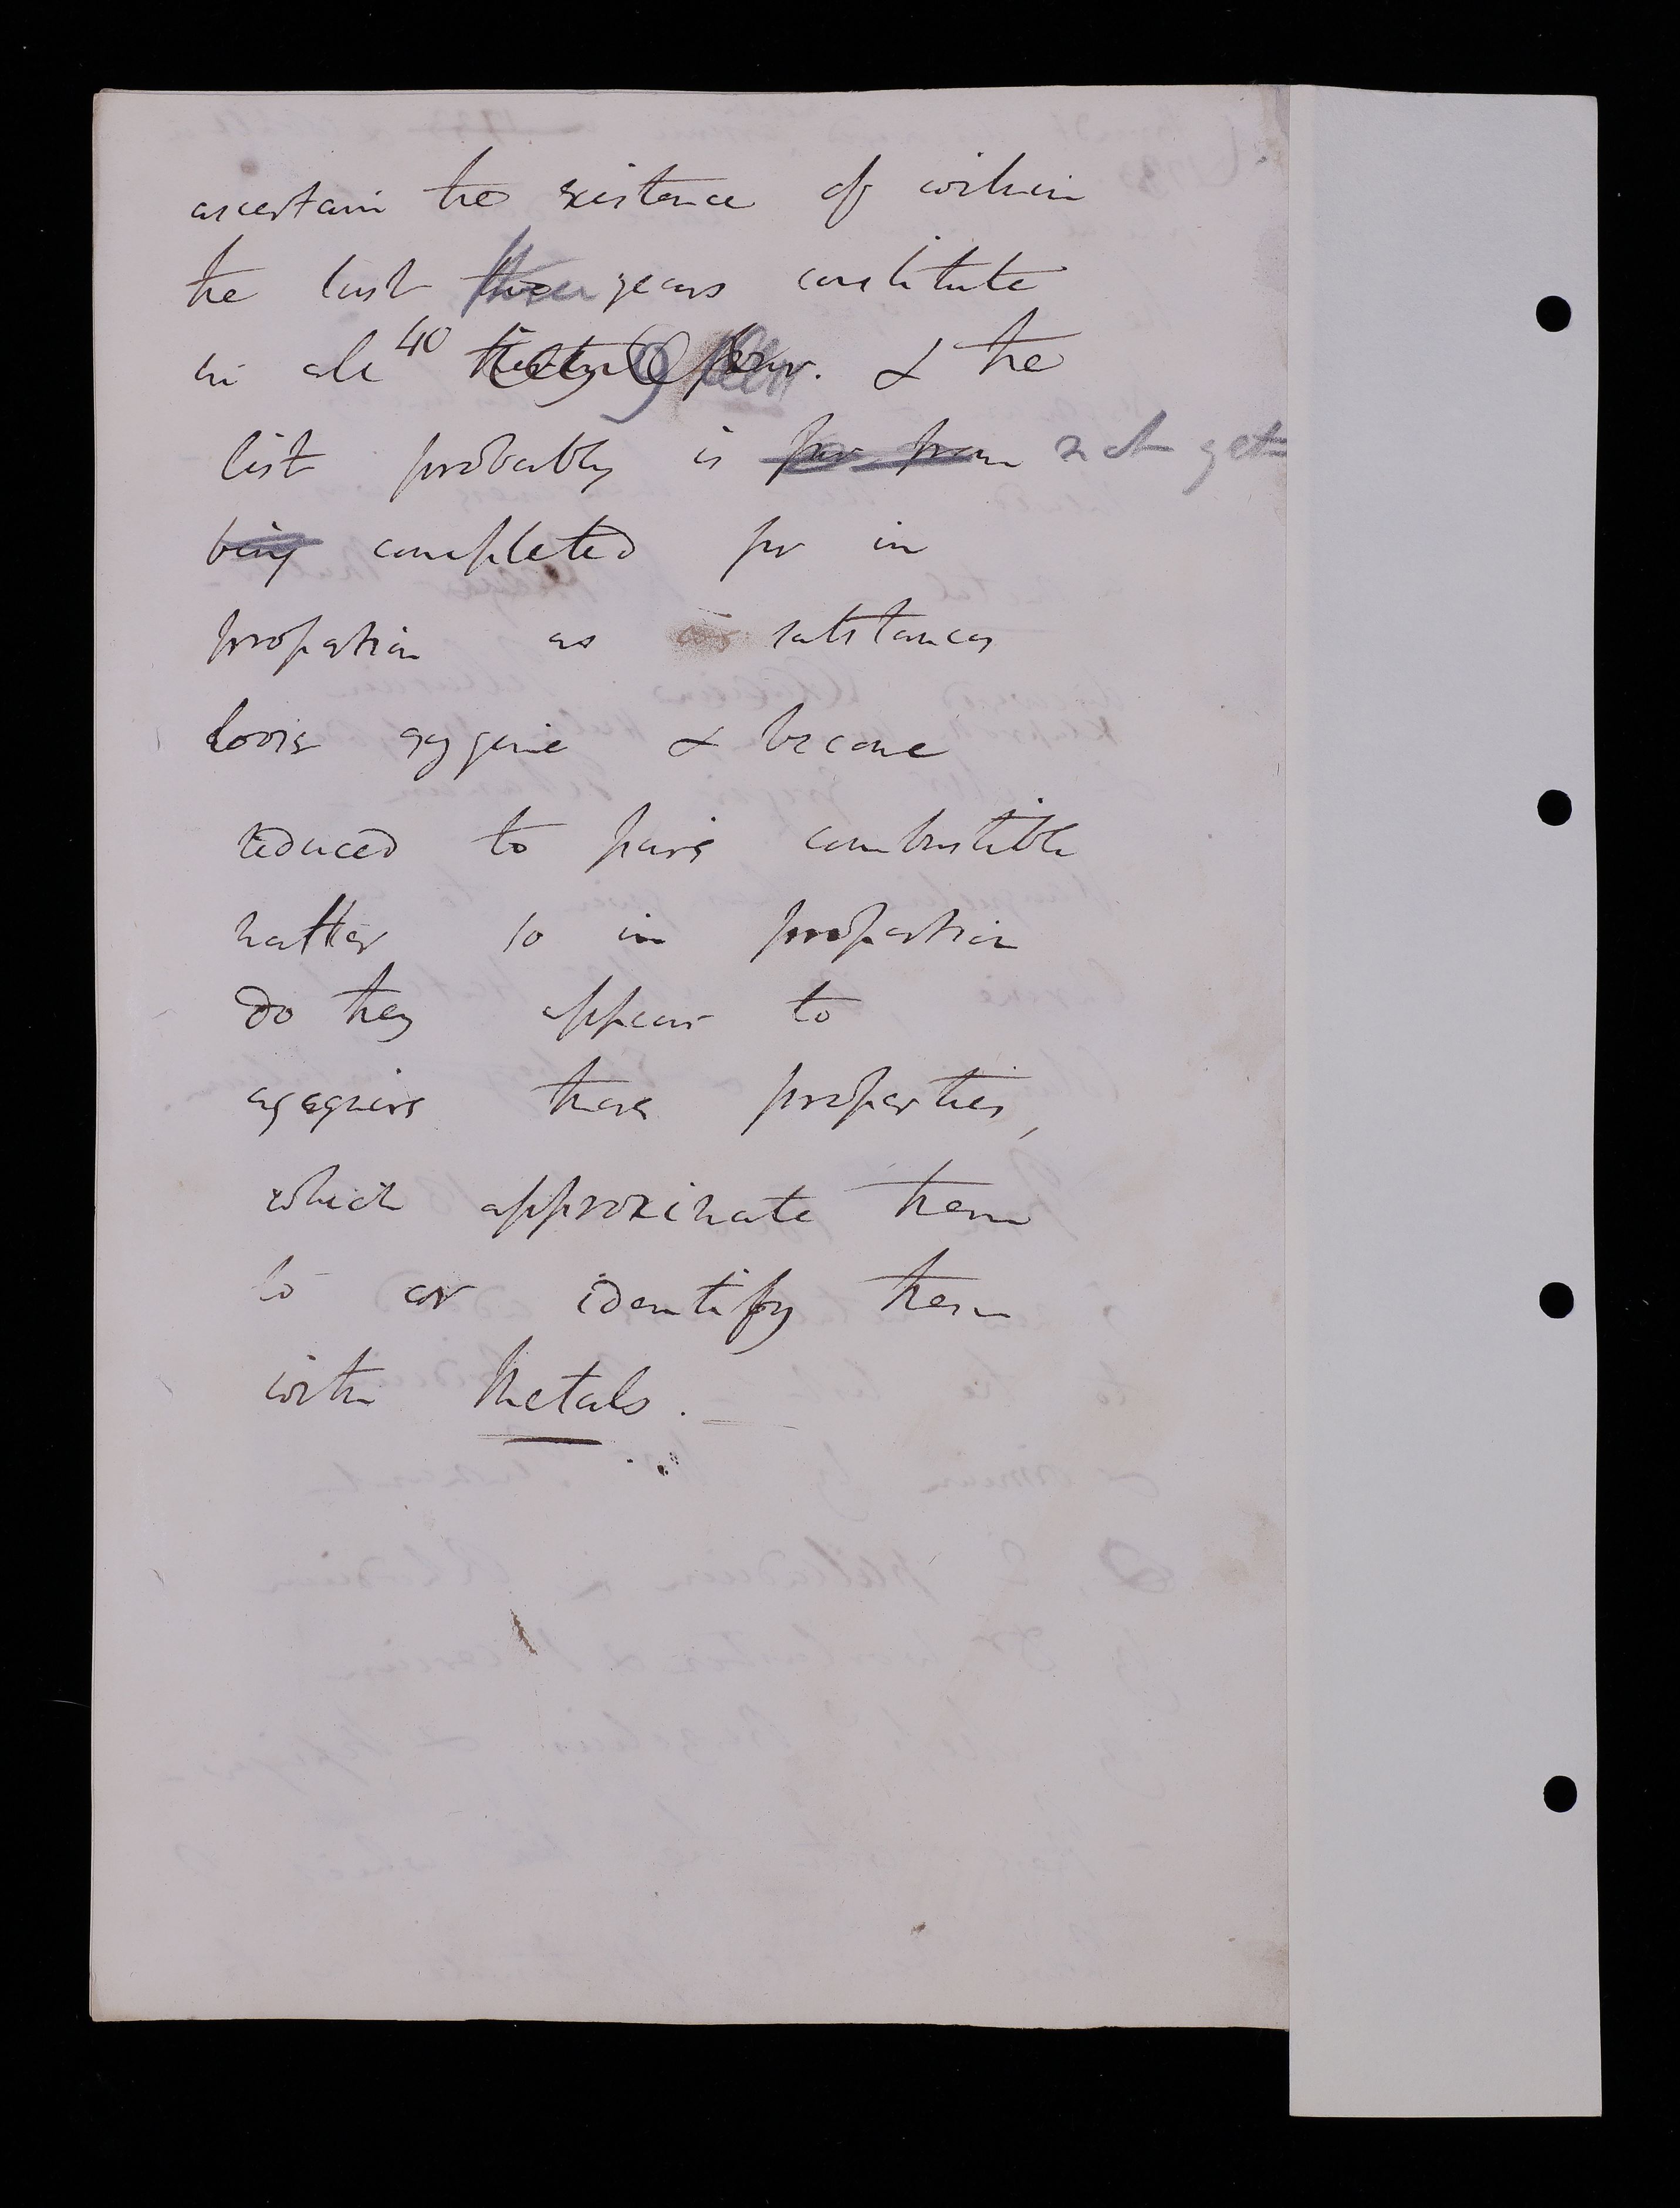 ascertain the existence of within
the last three years constitute
in all 40 thirty four. & the
list probably is far from not yet
being completed for in
proportion as substances
loose oxygene & become
reduced to pure combustible
matter so in proportion
do they appear to
acquire those properties,
which approximate them
to or identify them
with Metals.